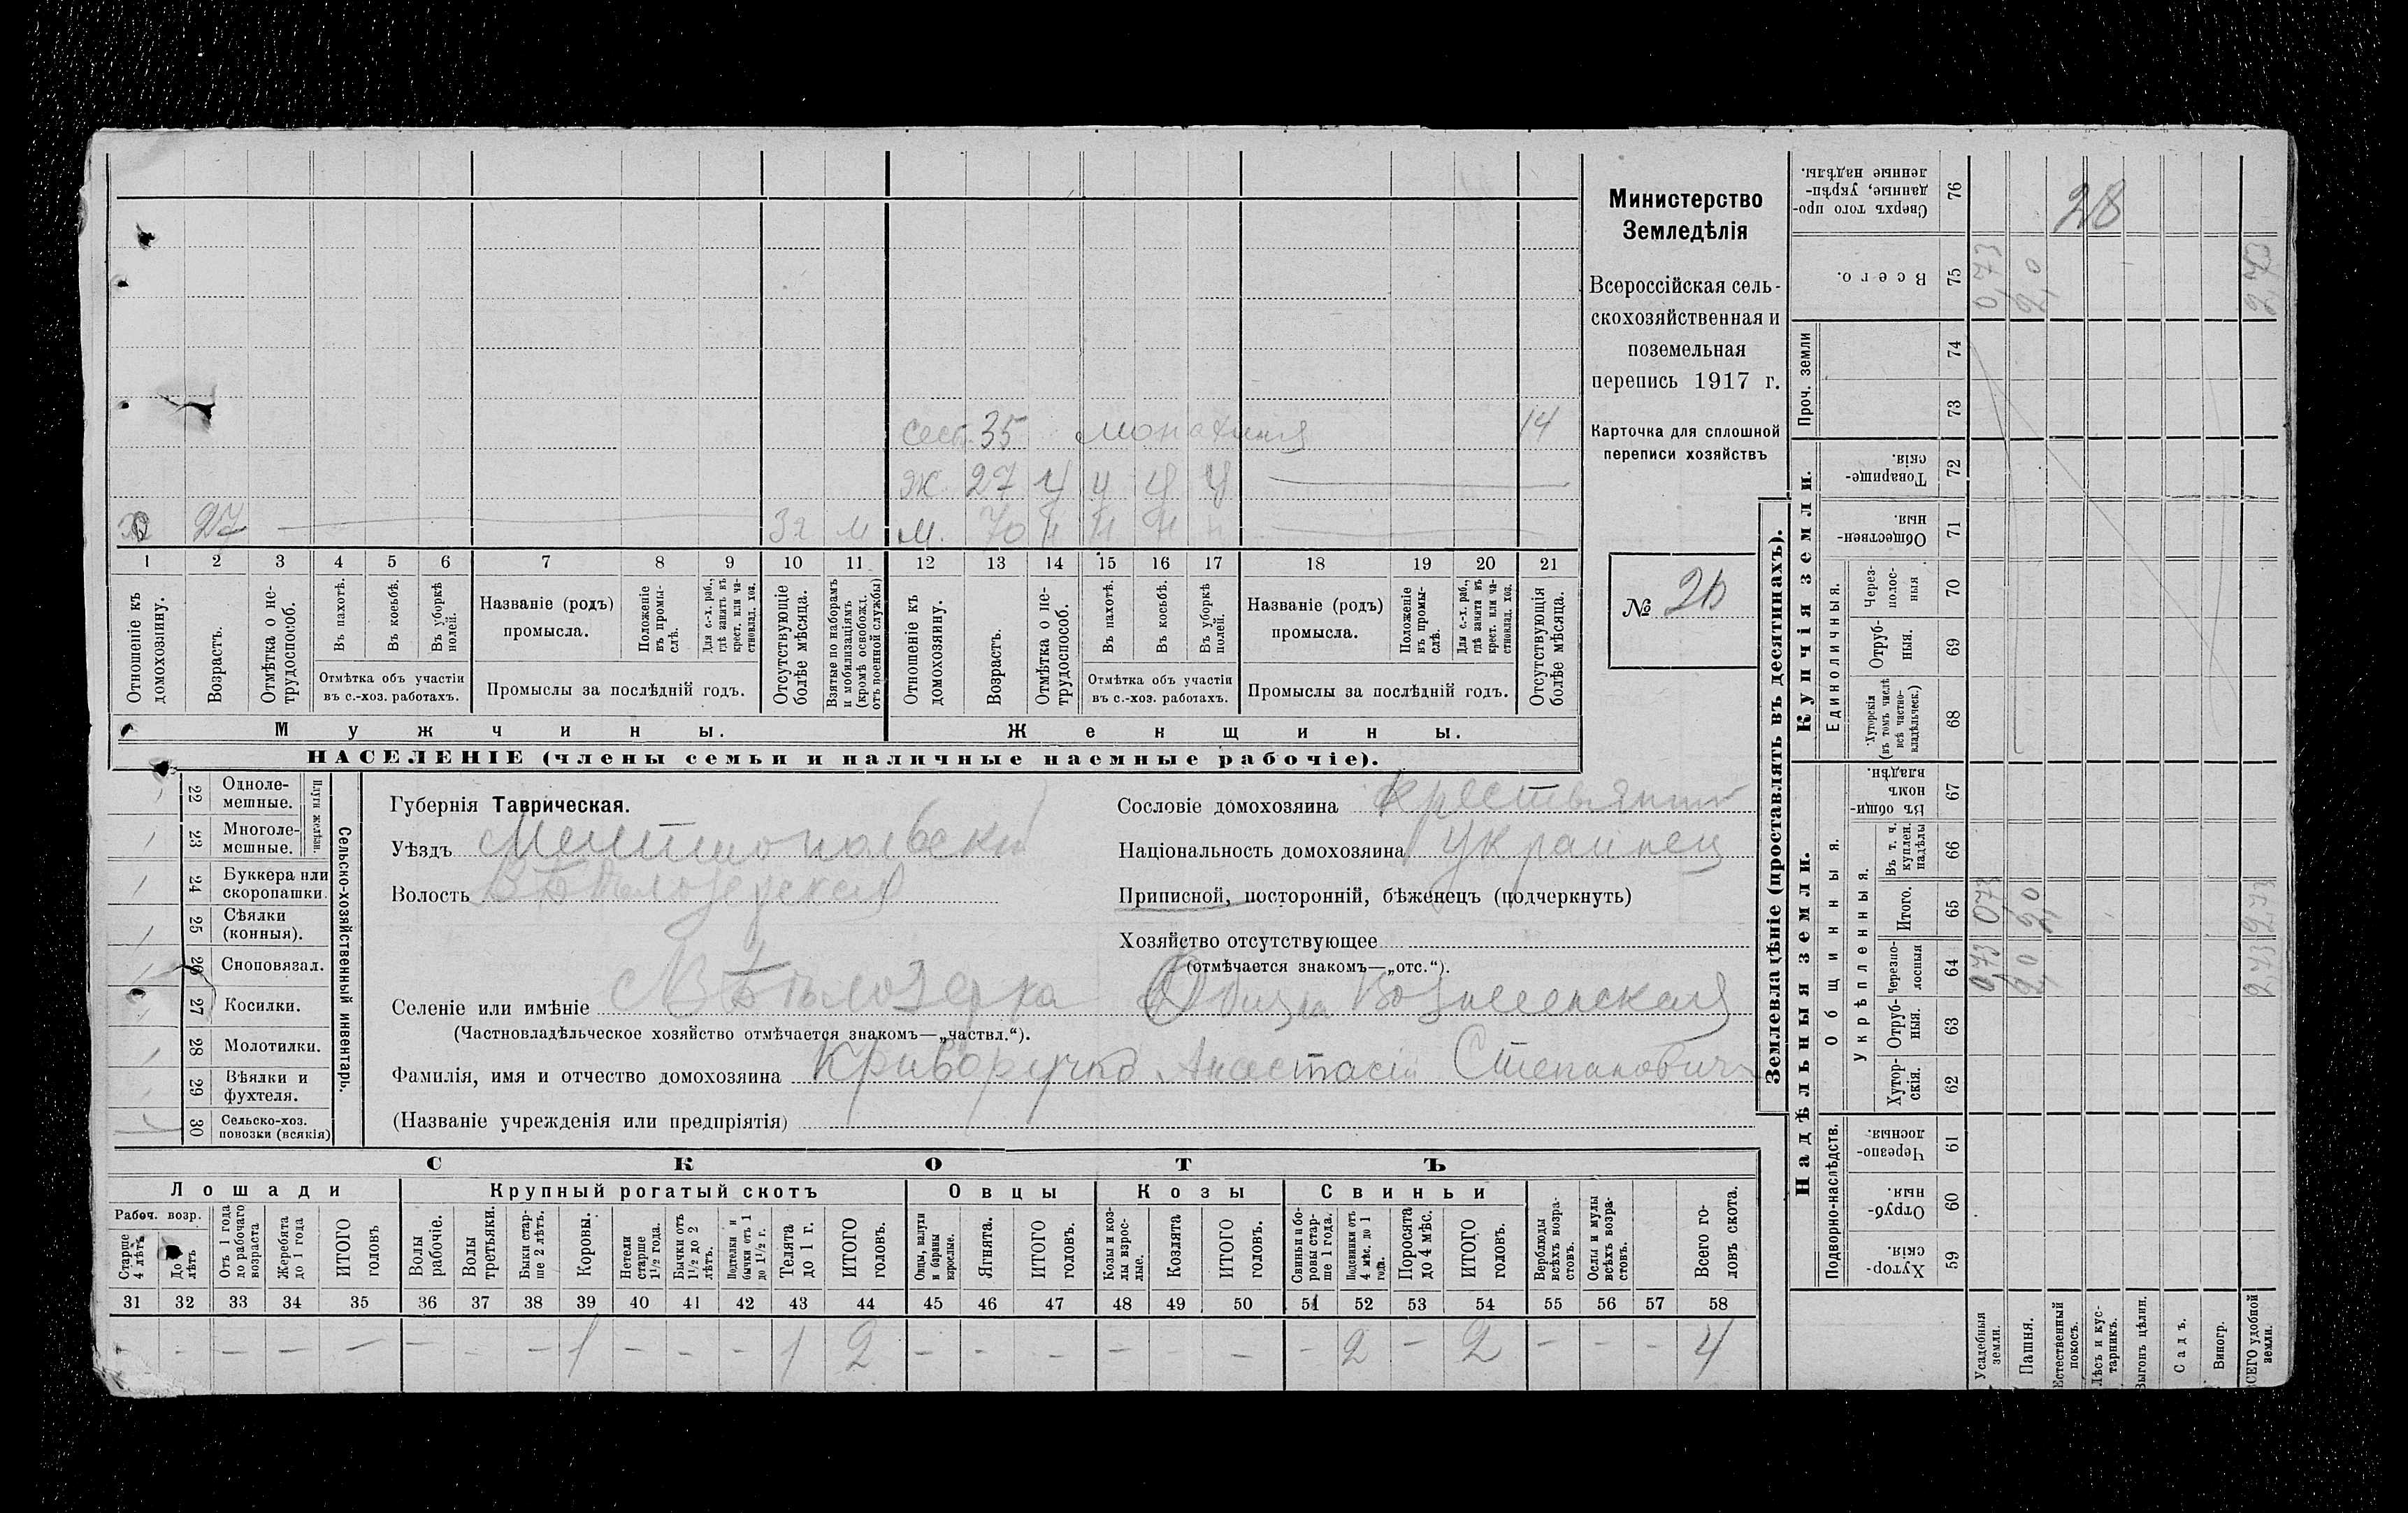 Министерство
Земледѣлія
Всероссійская сель-
скохозяйственная и
поземельная
перепись 1917 г.
Карточка для сплошной
переписи хозяйствъ
№ 28
сест. 35 монахиня 14
ж. 27 ч ч ч ч
х 27 3 г м м. 70 н н н н
1 2 3 4 5 6 7 8 9 10 11 12 13 14 15 16 17 18 19 20 21
Отношеніе къ домохозяину.
Возрастъ.
Отмѣтка о не-трудоспособ.
Въ пахотѣ.
Въ косьбѣ.
Въ уборкѣ полей.
Отмѣтка объ участіи
въ с.-хоз. работахъ.
Названіе (родъ)
промысла.
Положеніе въ промы-слѣ.
Для с.-х. раб., гдѣ занятъ въ крест. или ча-стновлад. хоз.
Промыслы за послѣдній годъ.
Отсутствующіе болѣе мѣсяца.
Взятые по наборамъ и мобилизаціямъ (кромѣ освобожд. отъ военной службы)
Отношеніе къ домохозяину.
Возрастъ.
Отмѣтка о не-трудоспособ.
Въ пахотѣ.
Въ косьбѣ.
Въ уборкѣ полей.
Отмѣтка объ участіи
въ с.-хоз. работахъ.
Названіе (родъ)
промысла.
Положеніе въ промы-слѣ.
Для с.-х. раб., гдѣ занята въ крест. или ча-стновлад. хоз.
Промыслы за послѣдній годъ.
Отсутствующія болѣе мѣсяца.
Мужчины. Женщины.
НАСЕЛЕНІЕ (члены семьи и наличные наемные рабочіе).
Сельско-хозяйственный инвентарь.
Плуги желѣзн.
22 Одноле-мешные.
23 Многоле-мешные.
24 Буккера или скоропашки.
25 Сѣялки (конныя).
26 Сноповязал.
27 Косилки.
28 Молотилки.
29 Вѣялки и фухтеля.
30 Сельско-хоз. повозки (всякія)
Губернія Таврическая.
Уѣздъ Мелитопольскій
Волость Бѣлозерская
Селеніе или имѣніе Бѣлозерка Община Вознесенская
(Частновладѣльческое хозяйство отмѣчается знакомъ—„частвл.“).
Фамилія, имя и отчество домохозяина Криворучко Анастасій Степановичъ
(Названіе учрежденія или предпріятія)
Сословіе домохозяина крестьянин
Національность домохозяина украинец
Приписной, посторонній, бѣженецъ (подчеркнуть)
Хозяйство отсутствующее
(отмѣчается знакомъ—„отс.“).
СКОТЪ
Лошади Крупный рогатый скотъ Овцы Козы Свиньи
Рабоч. возр.
Старше 4 лѣтъ
До 4 лѣтъ
Отъ 1 года до рабочаго возраста
Жеребята до 1 года
ИТОГО головъ
Волы рабочіе.
Волы третьяки.
Быки стар-ше 2 лѣтъ.
Коровы.
Нетели старше 1½ года.
Бычки отъ 1½ до 2 лѣтъ.
Подтелки и бычки отъ 1 до 1½ г.
Телята до 1 г.
ИТОГО головъ.
Овцы, валухи и бараны взрослые.
Ягнята.
ИТОГО головъ.
Козы и коз-лы взрос-лые.
Козлята
ИТОГО головъ.
Свиньи и бо-ровы стар-ше 1 года.
Подсвинки отъ 4 мѣс. до 1 года.
Поросята до 4 мѣс.
ИТОГО головъ.
Верблюды всѣхъ возра-стовъ.
Ослы и мулы всѣхъ возра-стовъ.
Всего го-ловъ скота.
31 32 33 34 35 36 37 38 39 40 41 42 43 44 45 46 47 48 49 50 51 52 53 54 55 56 57 58
- - - - - - - - 1 - - - 1 2 - - - - - - - 2 - 2 - - - 4
Землевладѣніе (проставлять въ десятинахъ).
Надѣльныя земли.
Купчія земли.
Подворно-наслѣдств.
Общинныя.
Укрѣпленныя.
Единоличныя.
Проч. земли
59 Хутор-скія.
60 Отруб-ныя.
61 Черезпо-лосныя.
62 Хутор-скія.
63 Отруб-ныя.
64 Черезпо-лосныя
65 Итого.
66 Въ т. ч. куплен. надѣлы
67 Въ общи-номъ владѣн.
68 Хуторскія (въ томъ числѣ всѣ частно-владѣльческ.)
69 Отруб-ныя.
70 Через-полос-ныя
71 Обществен-ныя
72 Товарище-скія.
73
74
75 Всего.
76 Сверхъ того про-данные, укрѣп-ленные надѣлы.
28
Усадебныя земли. 0,73 073 0,73
Пашня. 2,0 2,0 2,0
Естественный покосъ.
Лѣсъ и кус-тарникъ.
Выгонъ цѣлин.
Садъ.
Виногр.
ВСЕГО удобной земли. 2,73 2,73 2,73